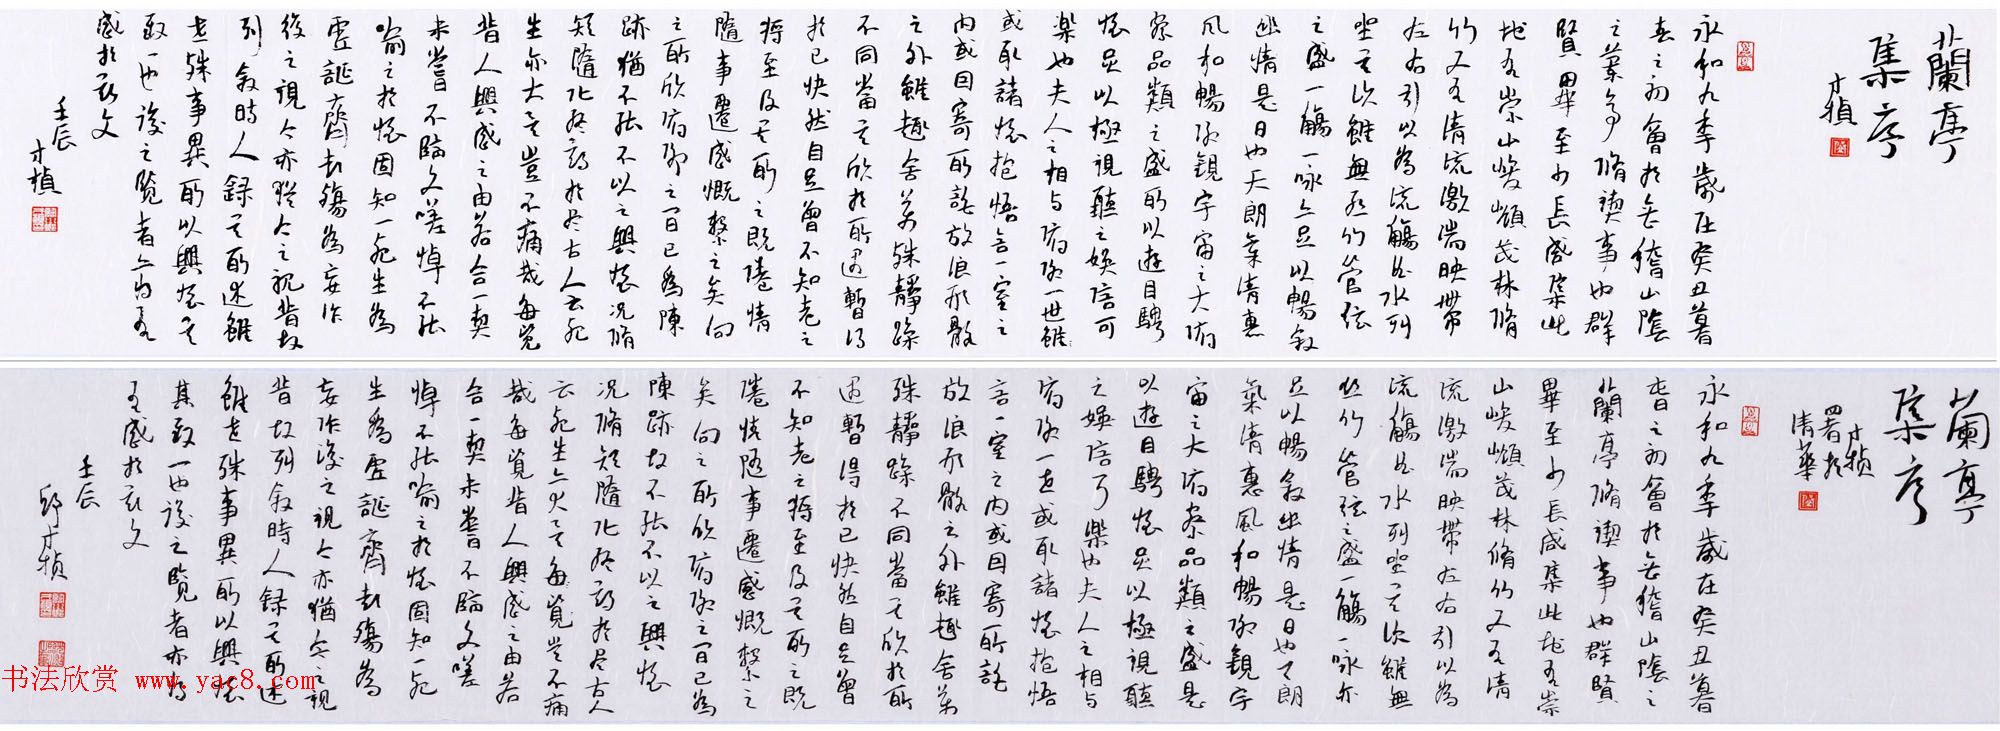 蘭亭
集序
才楨
永和九年歲在癸丑暮
春之初會於會稽山陰
之蘭亭脩禊事也群
賢畢至少長咸集此
地有崇山峻嶺茂林脩
竹又有清流激湍映帶
左右引以為流觴曲水列
坐其次雖無絲竹管弦
之盛一觴一咏亦足以暢敘
幽情是日也天朗氣清惠
風和暢仰觀宇宙之大俯
察品類之盛所以遊目騁
懷足以極視聽之娛信可
樂也夫人之相與俯仰一世
或取諸懷抱悟言一室之
內或因寄所託放浪形骸
之外雖趣舍萬殊靜躁
不同當其欣於所遇暫得
於己快然自足曾不知老之
將至及其所之既惓情
隨事遷感慨繫之矣向
之所欣俯仰之間已為陳
跡猶不能不以之興懷況脩
短隨化終期於盡古人云死
生亦大矣豈不痛哉每覽
昔人興感之由若合一契
未嘗不臨文嗟悼不能
喻之於懷固知一死生為
虛誕齊彭殤為妄作
後之視今亦猶今之視昔故
列敘時人錄其所述雖
世殊事異所以興懷其
致一也後之覽者亦將有
感於斯文
壬辰
才楨
蘭亭
集序
才楨
署於
清華
永和九年歲在癸丑暮
春之初會於會稽山陰之
蘭亭脩禊事也群賢
畢至少長咸集此地有崇
山峻嶺茂林脩竹又有清
流激湍映帶左右引以為
流觴曲水列坐其次雖無
絲竹管弦之盛一觴一咏亦
足以暢敘幽情是日也天朗
氣清惠風和暢仰觀宇
宙之大俯察品類之盛是
以遊目騁懷足以極視聽
之娛信可樂也夫人之相與
俯仰一世或取諸懷抱悟
言一室之內或因寄所託
放浪形骸之外雖趣舍萬
殊靜躁不同當其欣於所
遇暫得於己快然自足曾
不知老之將至及其所之既
惓情隨事遷感慨繫之
矣向之所欣俯仰之間已為
陳跡故不能不以之興懷
況脩短隨化終期於盡古人
云死生亦大矣每覽豈不痛
哉每覽昔人興感之由若
合一契未嘗不臨文嗟
悼不能喻之於懷固知一死
生為虛誕齊彭殤為
妄作後之視今亦猶今之視
昔故列敘時人錄其所述
雖世殊事異所以興懷
其致一也後之覽者亦將
有感於斯文
壬辰
鄒才楨
书法欣赏 www.yac8.com